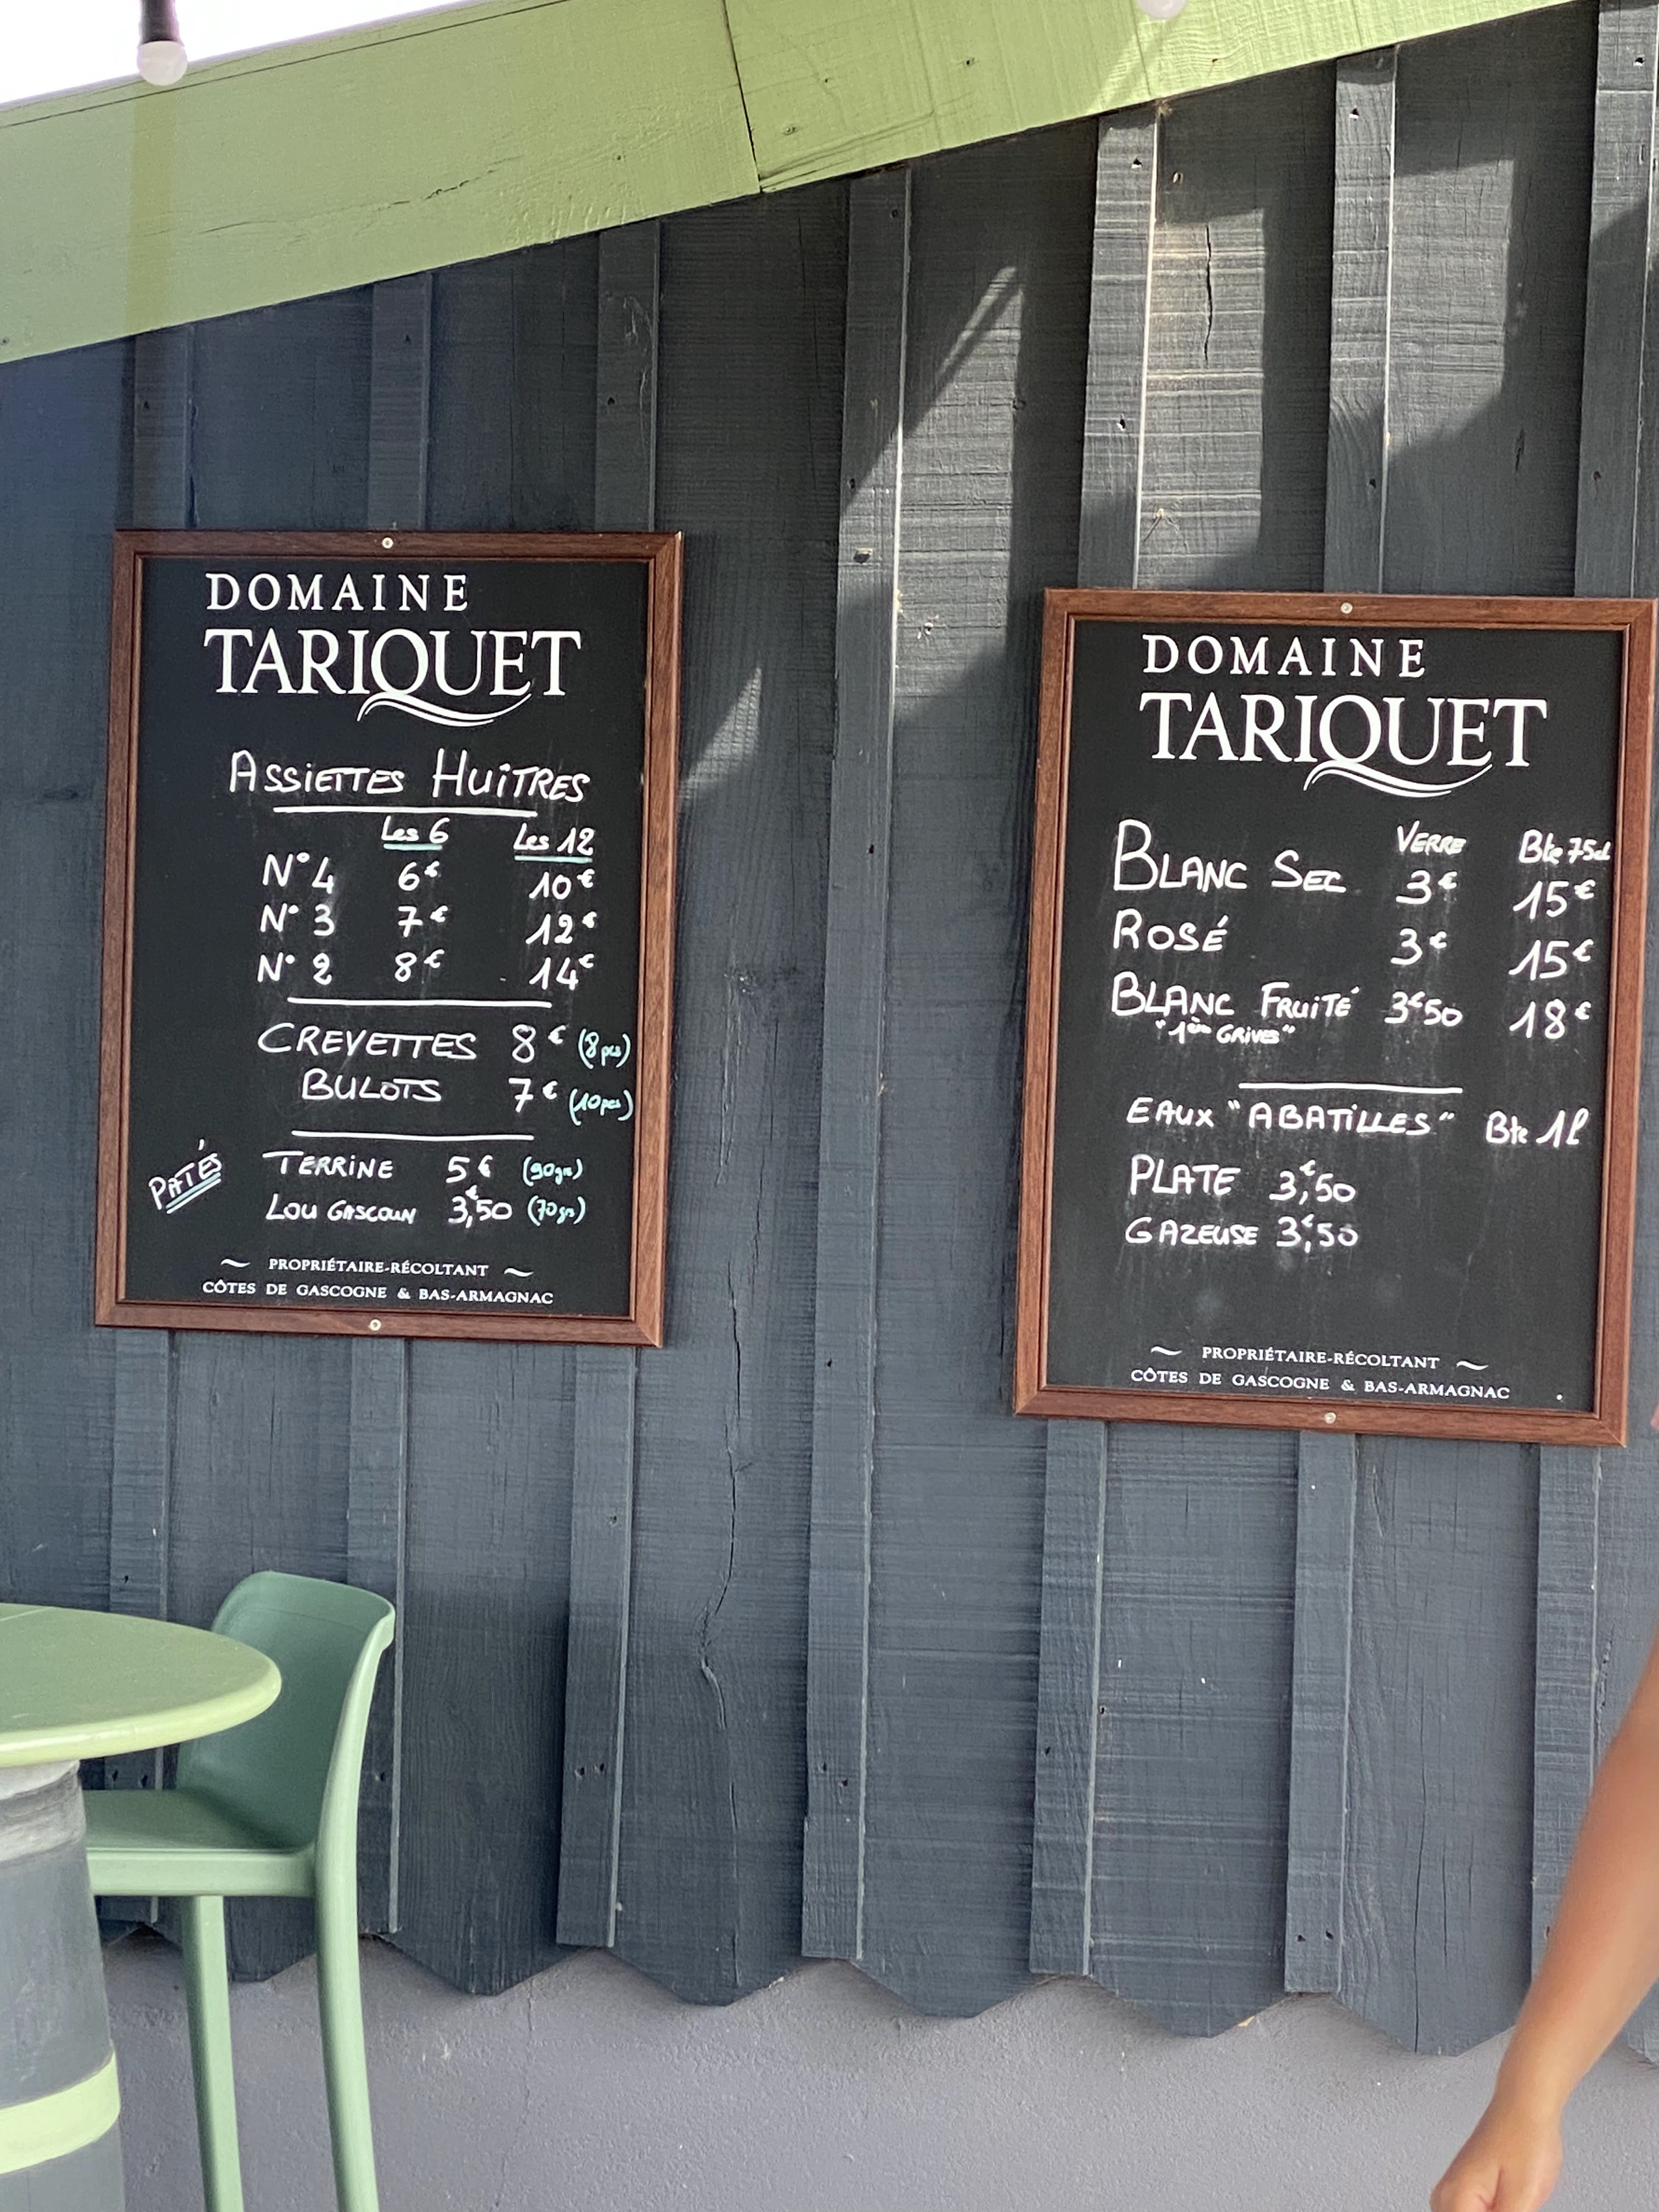 DOMAINE
TARIQUET
ASSIETTES HUITRES
Les 6 Les 12
N°4 6€ 10€
N°3 7€ 12€
N°2 8€ 14€
CREVETTES 8€ (8pcs)
BULOTS 7€ (10pcs)
PÂTÉS
TERRINE 5€ (90grs)
LOU GASCOUN 3,€50 (70grs)
PROPRIÉTAIRE-RÉCOLTANT
CÔTES DE GASCOGNE & BAS-ARMAGNAC
DOMAINE
TARIQUET
VERRE Bte 75cl
BLANC SEC 3€ 15€
ROSÉ 3€ 15€
BLANC FRUITÉ 3€50 18€
"1ères GRIVES"
EAUX "ABATILLES" Bte 1l
PLATE 3,€50
GAZEUSE 3,€50
PROPRIÉTAIRE-RÉCOLTANT
CÔTES DE GASCOGNE & BAS-ARMAGNAC